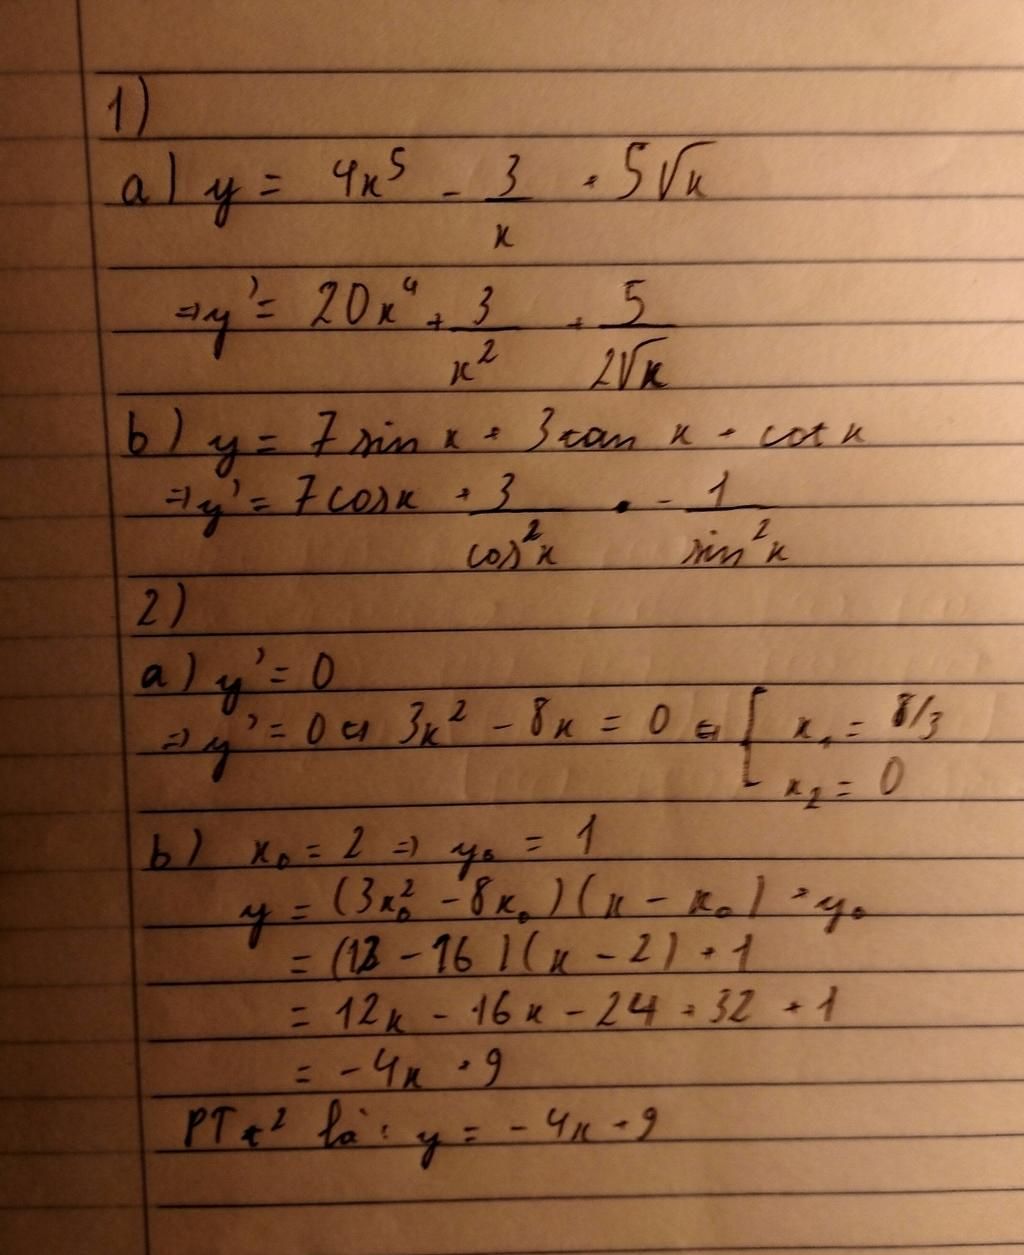 1)
a) y = 4x⁵ - 3/x + 5√x
⇒ y' = 20x⁴ + 3/x² + 5/(2√x)
b) y = 7 sin x + 3 tan x + cot x
⇒ y' = 7 cos x + 3/cos²x - 1/sin²x
2)
a) y' = 0
⇒ y' = 0 ⇔ 3x² - 8x = 0 ⇔ [ x₁ = 8/3
x₂ = 0
b) x₀ = 2 ⇒ y₀ = 1
y = (3x₀² - 8x₀)(x - x₀) + y₀
= (12 - 16)(x - 2) + 1
= 12x - 16x - 24 + 32 + 1
= -4x + 9
PT t² là: y = -4x + 9